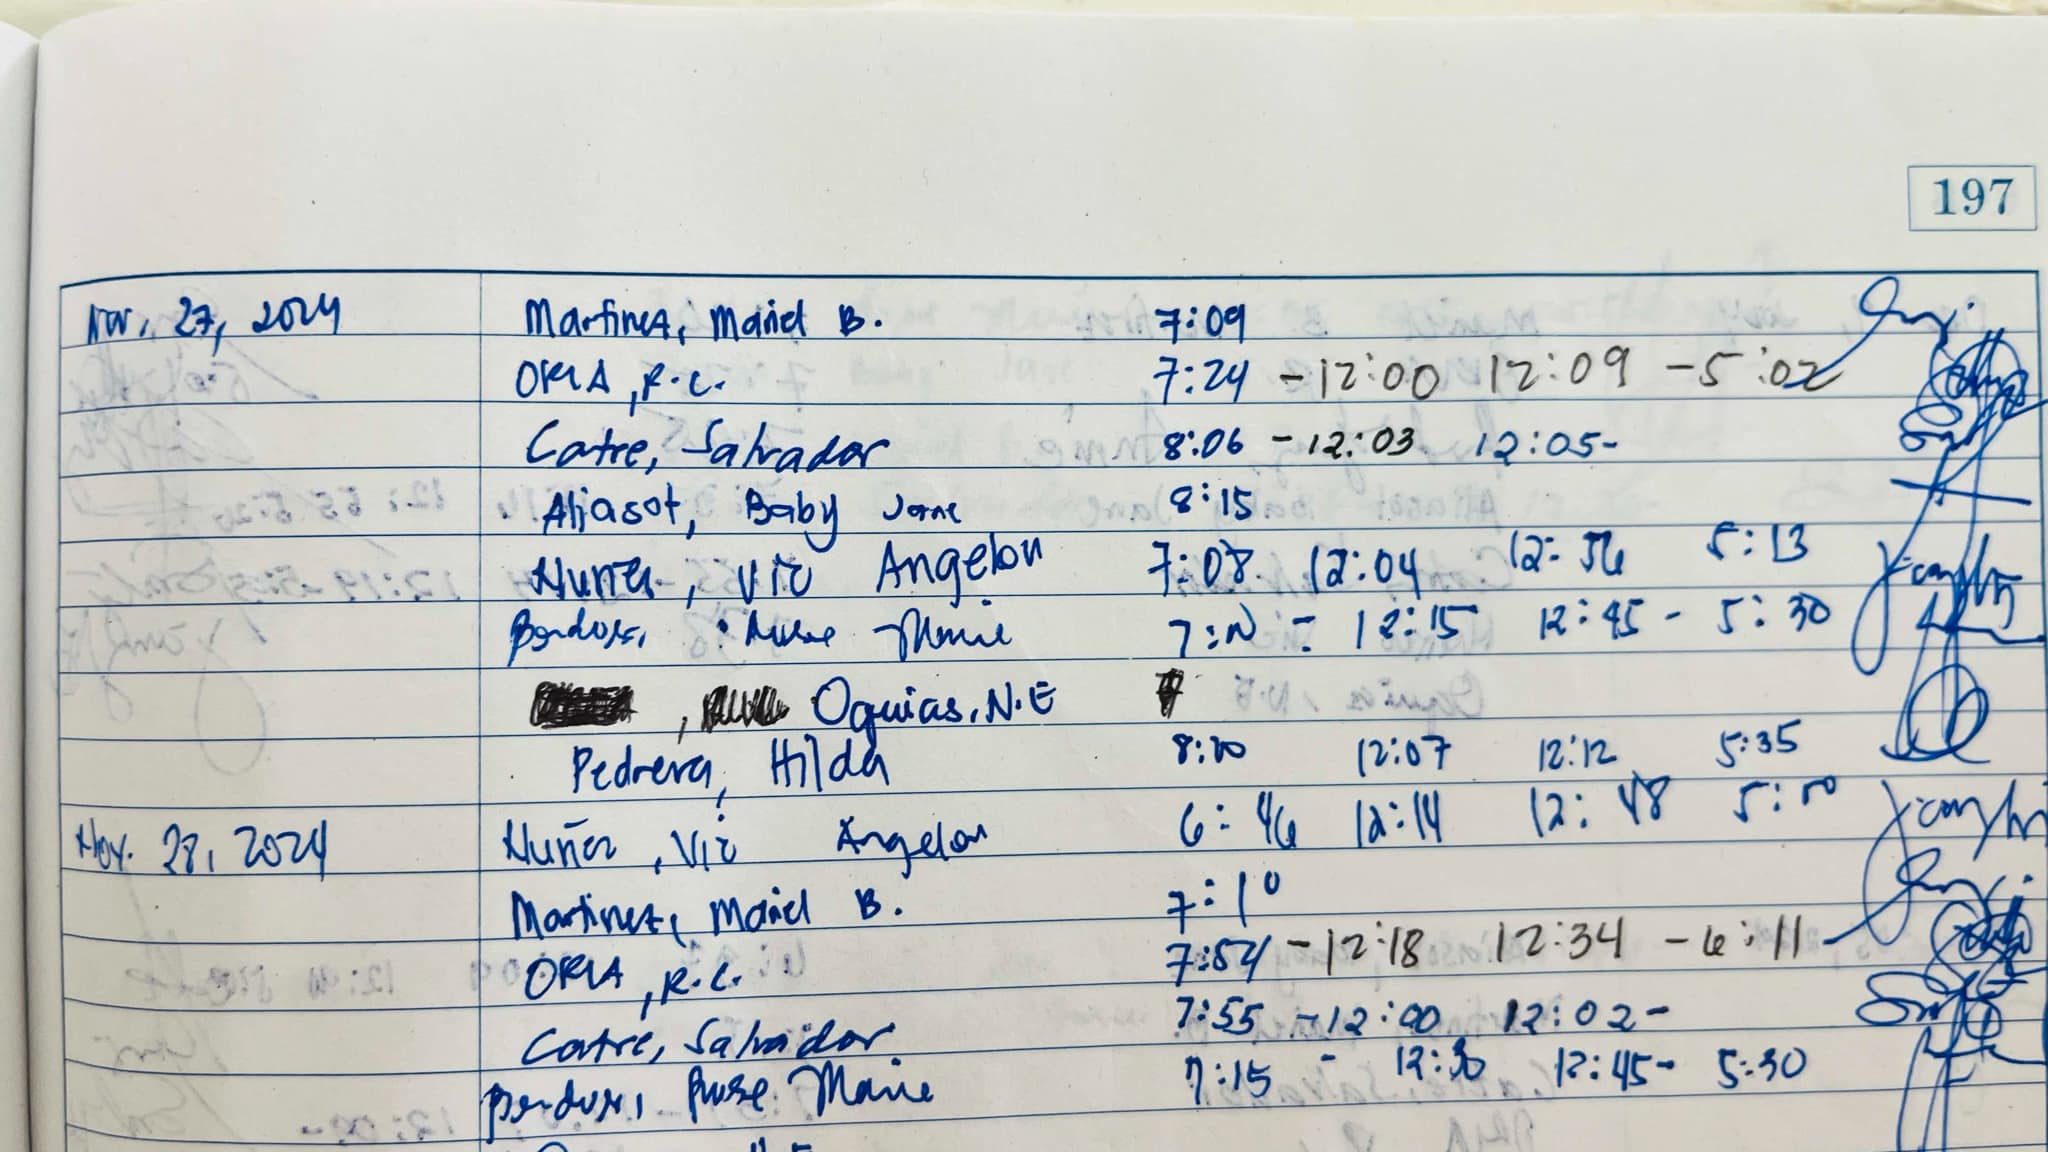 197
Nov. 27, 2024 Martinez, Mariel B. 7:09
ORIA, R.C. 7:24 - 12:00 12:09 - 5:02
Catre, Salvador 8:06 - 12:03 12:05-
Aliasot, Baby Jane 8:15
Nuñez, Vic Angelou 7:08 12:04 12:56 5:13
Rose Marie 12:15 12:45 - 5:30
, Oquias, N.E
Pedrera, Hilda 8:20 12:07 12:12 5:35
Nov. 28, 2024 Nuñez, Vic Angelou 6:46 12:14 12:48 5:10
Martinez, Mariel B. 7:10
ORIA, R.C. 7:54 - 12:18 12:34 - 6:11
Catre, Salvador 7:55 - 12:00 12:02-
Rose Marie 7:15 - 12:30 12:45- 5:30